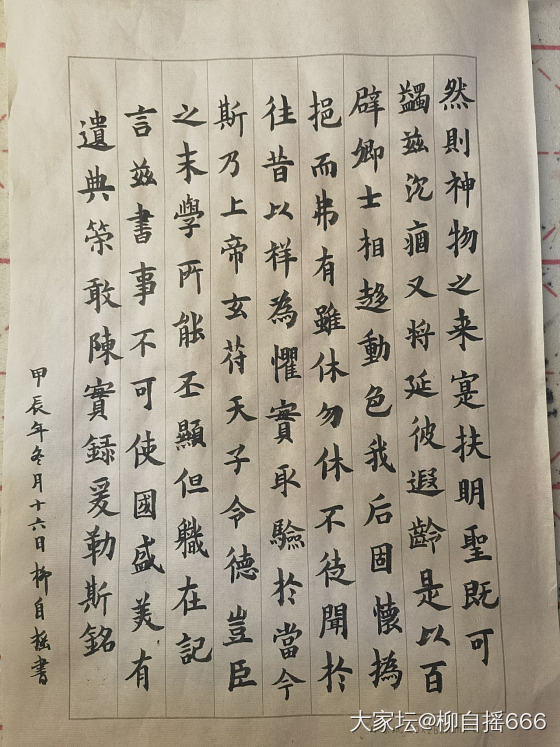 然則神物之来寔扶明聖既可
蠲兹沉痼又将延彼遐齡是以百
辟卿士相趍動色我后固懷撝
挹而弗有雖休勿休不徒聞於
往昔以祥為懼實取驗於當今
斯乃上帝玄符天子令德豈臣
之末學所能丕顯但職在記
言兹書事不可使國盛美有
遺典策敢陳實録爰勒斯銘
甲辰年冬月十六日柳自摇書
大家坛@柳自摇666